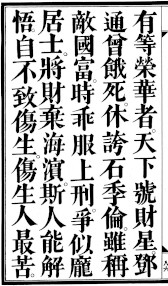 有等榮華者天下號財星鄧
通曾餓死休誇石季倫雖稱
敵國富時乖服上刑爭似龐
居士將財棄海濱斯人能解
悟自不致傷生傷生人最苦